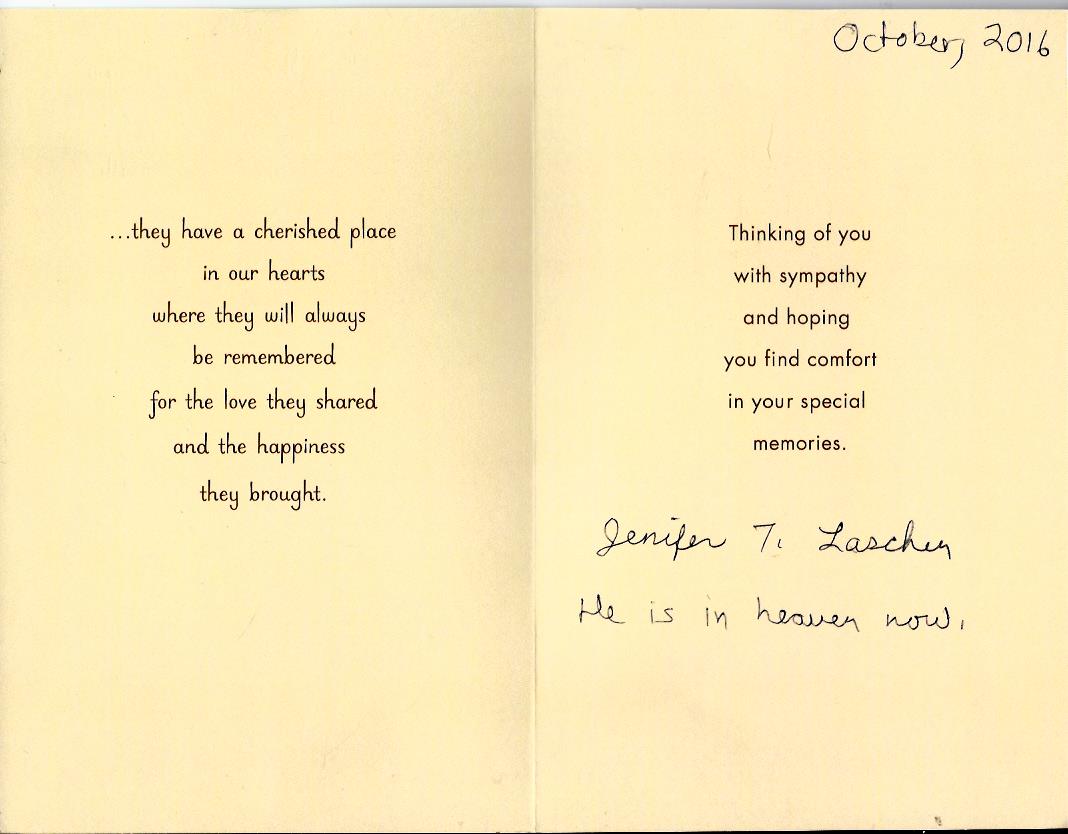 October, 2016
...they have a cherished place
in our hearts
where they will always
be remembered
for the love they shared
and the happiness
they brought.
Thinking of you
with sympathy
and hoping
you find comfort
in your special
memories.
Jenifer T.
He is in heaven now.